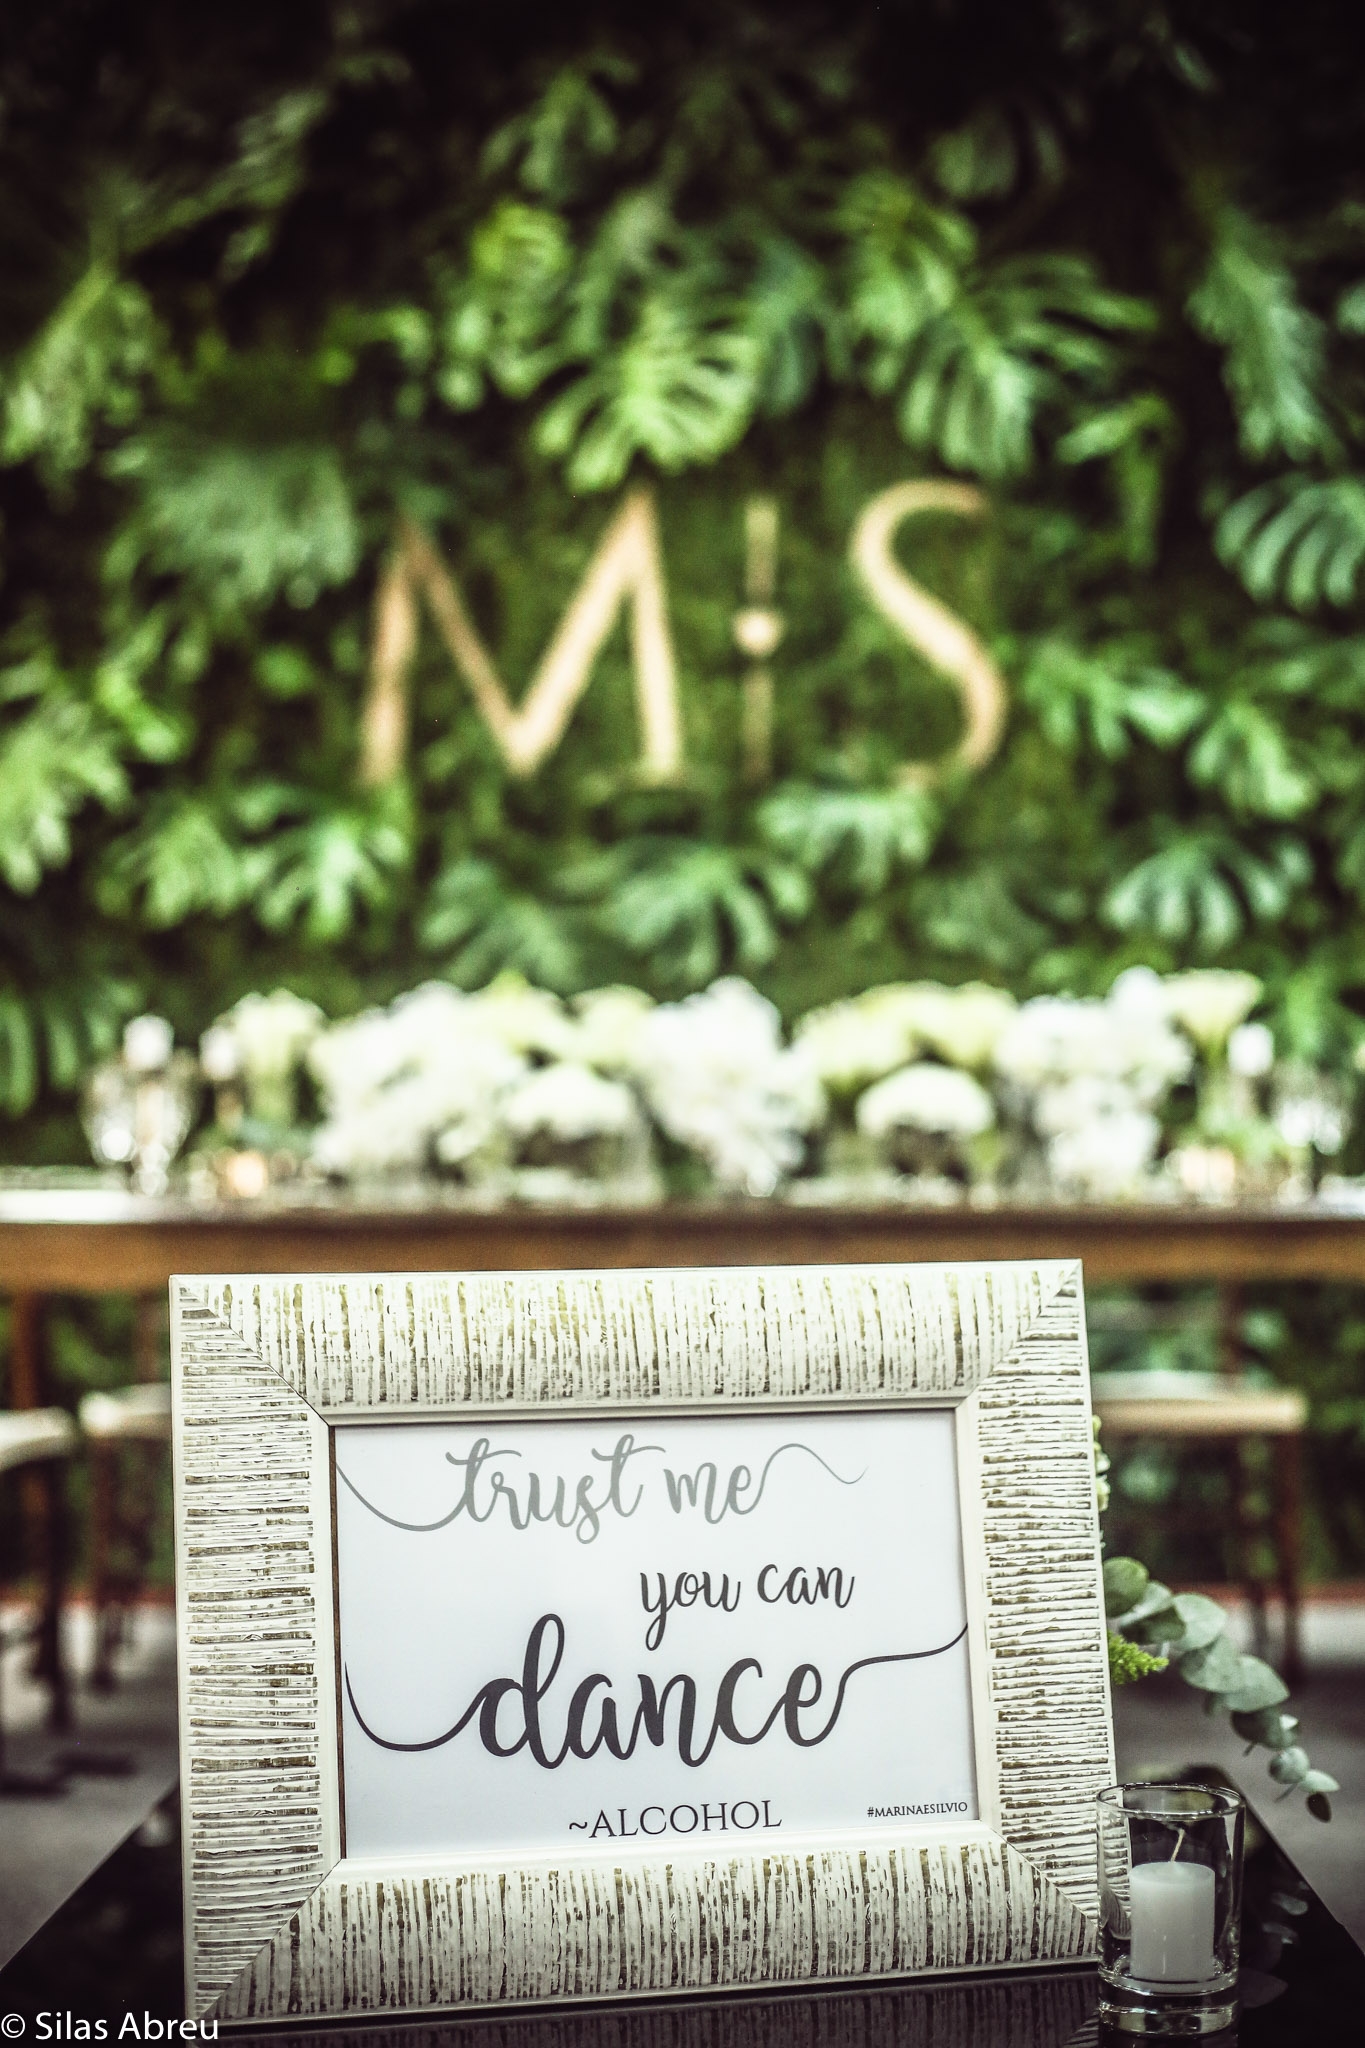 M S
trust me
you can
dance
~ALCOHOL
#MARINAESILVIO
© Silas Abreu